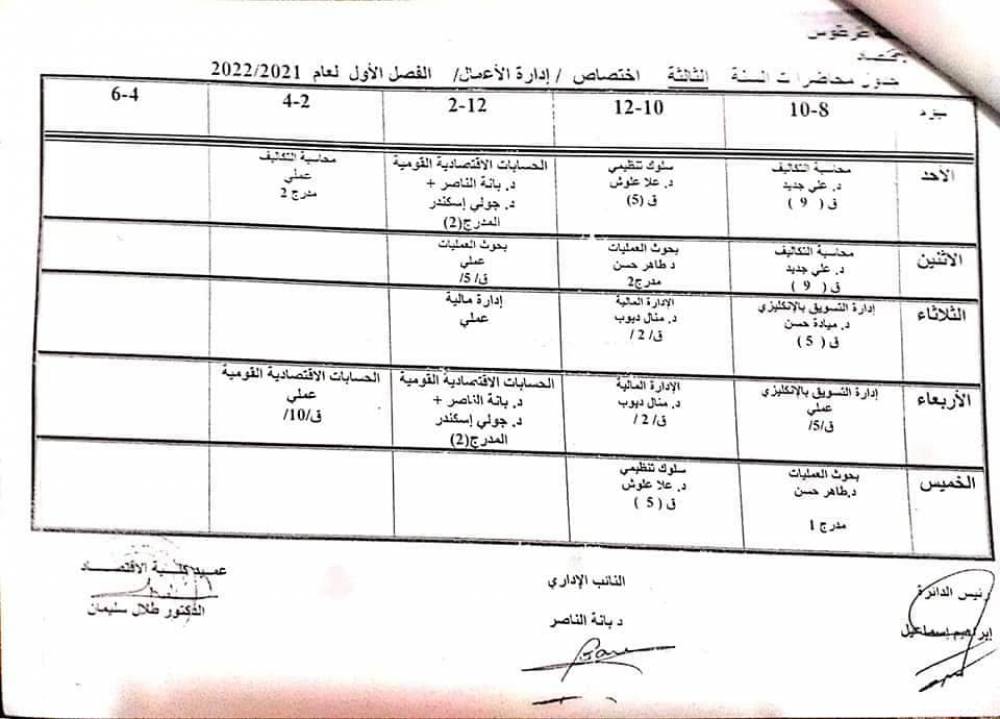 طرطوس
جدول محاضرات السنة الثالثة اختصاص / إدارة الأعمال/ الفصل الأول لعام 2022/2021
10-8 12-10 2-12 4-2 6-4
الأحد
محاسبة التكاليف
د. علي جديد
ق ( 9 )
سلوك تنظيمي
د. علا علوش
ق (5)
الحسابات الاقتصادية القومية
د. بانة الناصر +
د. جولي إسكندر
المدرج(2)
محاسبة التكاليف
عملي
مدرج 2
الاثنين
محاسبة التكاليف
د. علي جديد
ق ( 9 )
بحوث العمليات
د طاهر حسن
مدرج2
بحوث العمليات
عملي
ق/ 5/
الثلاثاء
إدارة التسويق بالإنكليزي
د. ميادة حسن
ق ( 5 )
الإدارة المالية
د. منال ديوب
ق/ 2 /
إدارة مالية
عملي
الأربعاء
إدارة التسويق بالإنكليزي
عملي
ق/5/
الإدارة المالية
د. منال ديوب
ق/ 2 /
الحسابات الاقتصادية القومية
د. بانة الناصر +
د. جولي إسكندر
المدرج(2)
الحسابات الاقتصادية القومية
عملي
ق/10/
الخميس
بحوث العمليات
د.طاهر حسن
مدرج 1
سلوك تنظيمي
د. علا علوش
ق ( 5 )
رئيس الدائرة
إبراهيم إسماعيل
النائب الإداري
د بانة الناصر
عميد كلية الاقتصاد
الدكتور طلال سليمان